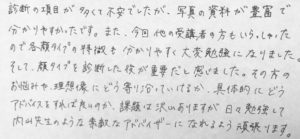 診断の項目が多くて不安でしたが、写真の資料が豊富で
分かりやすかったです。また、今回他の受講者の方もいらっしゃった
ので各顔タイプの特徴も分かりやすく大変勉強になりました。
そして、顔タイプを診断した後が重要だと感じました。その方の
お悩みや、理想像にどう寄り添っていけるか、具体的にどう
アドバイスをすれば良いのか、課題は沢山ありますが日々勉強して
内山先生のような素敵なアドバイザーになれるよう頑張ります。